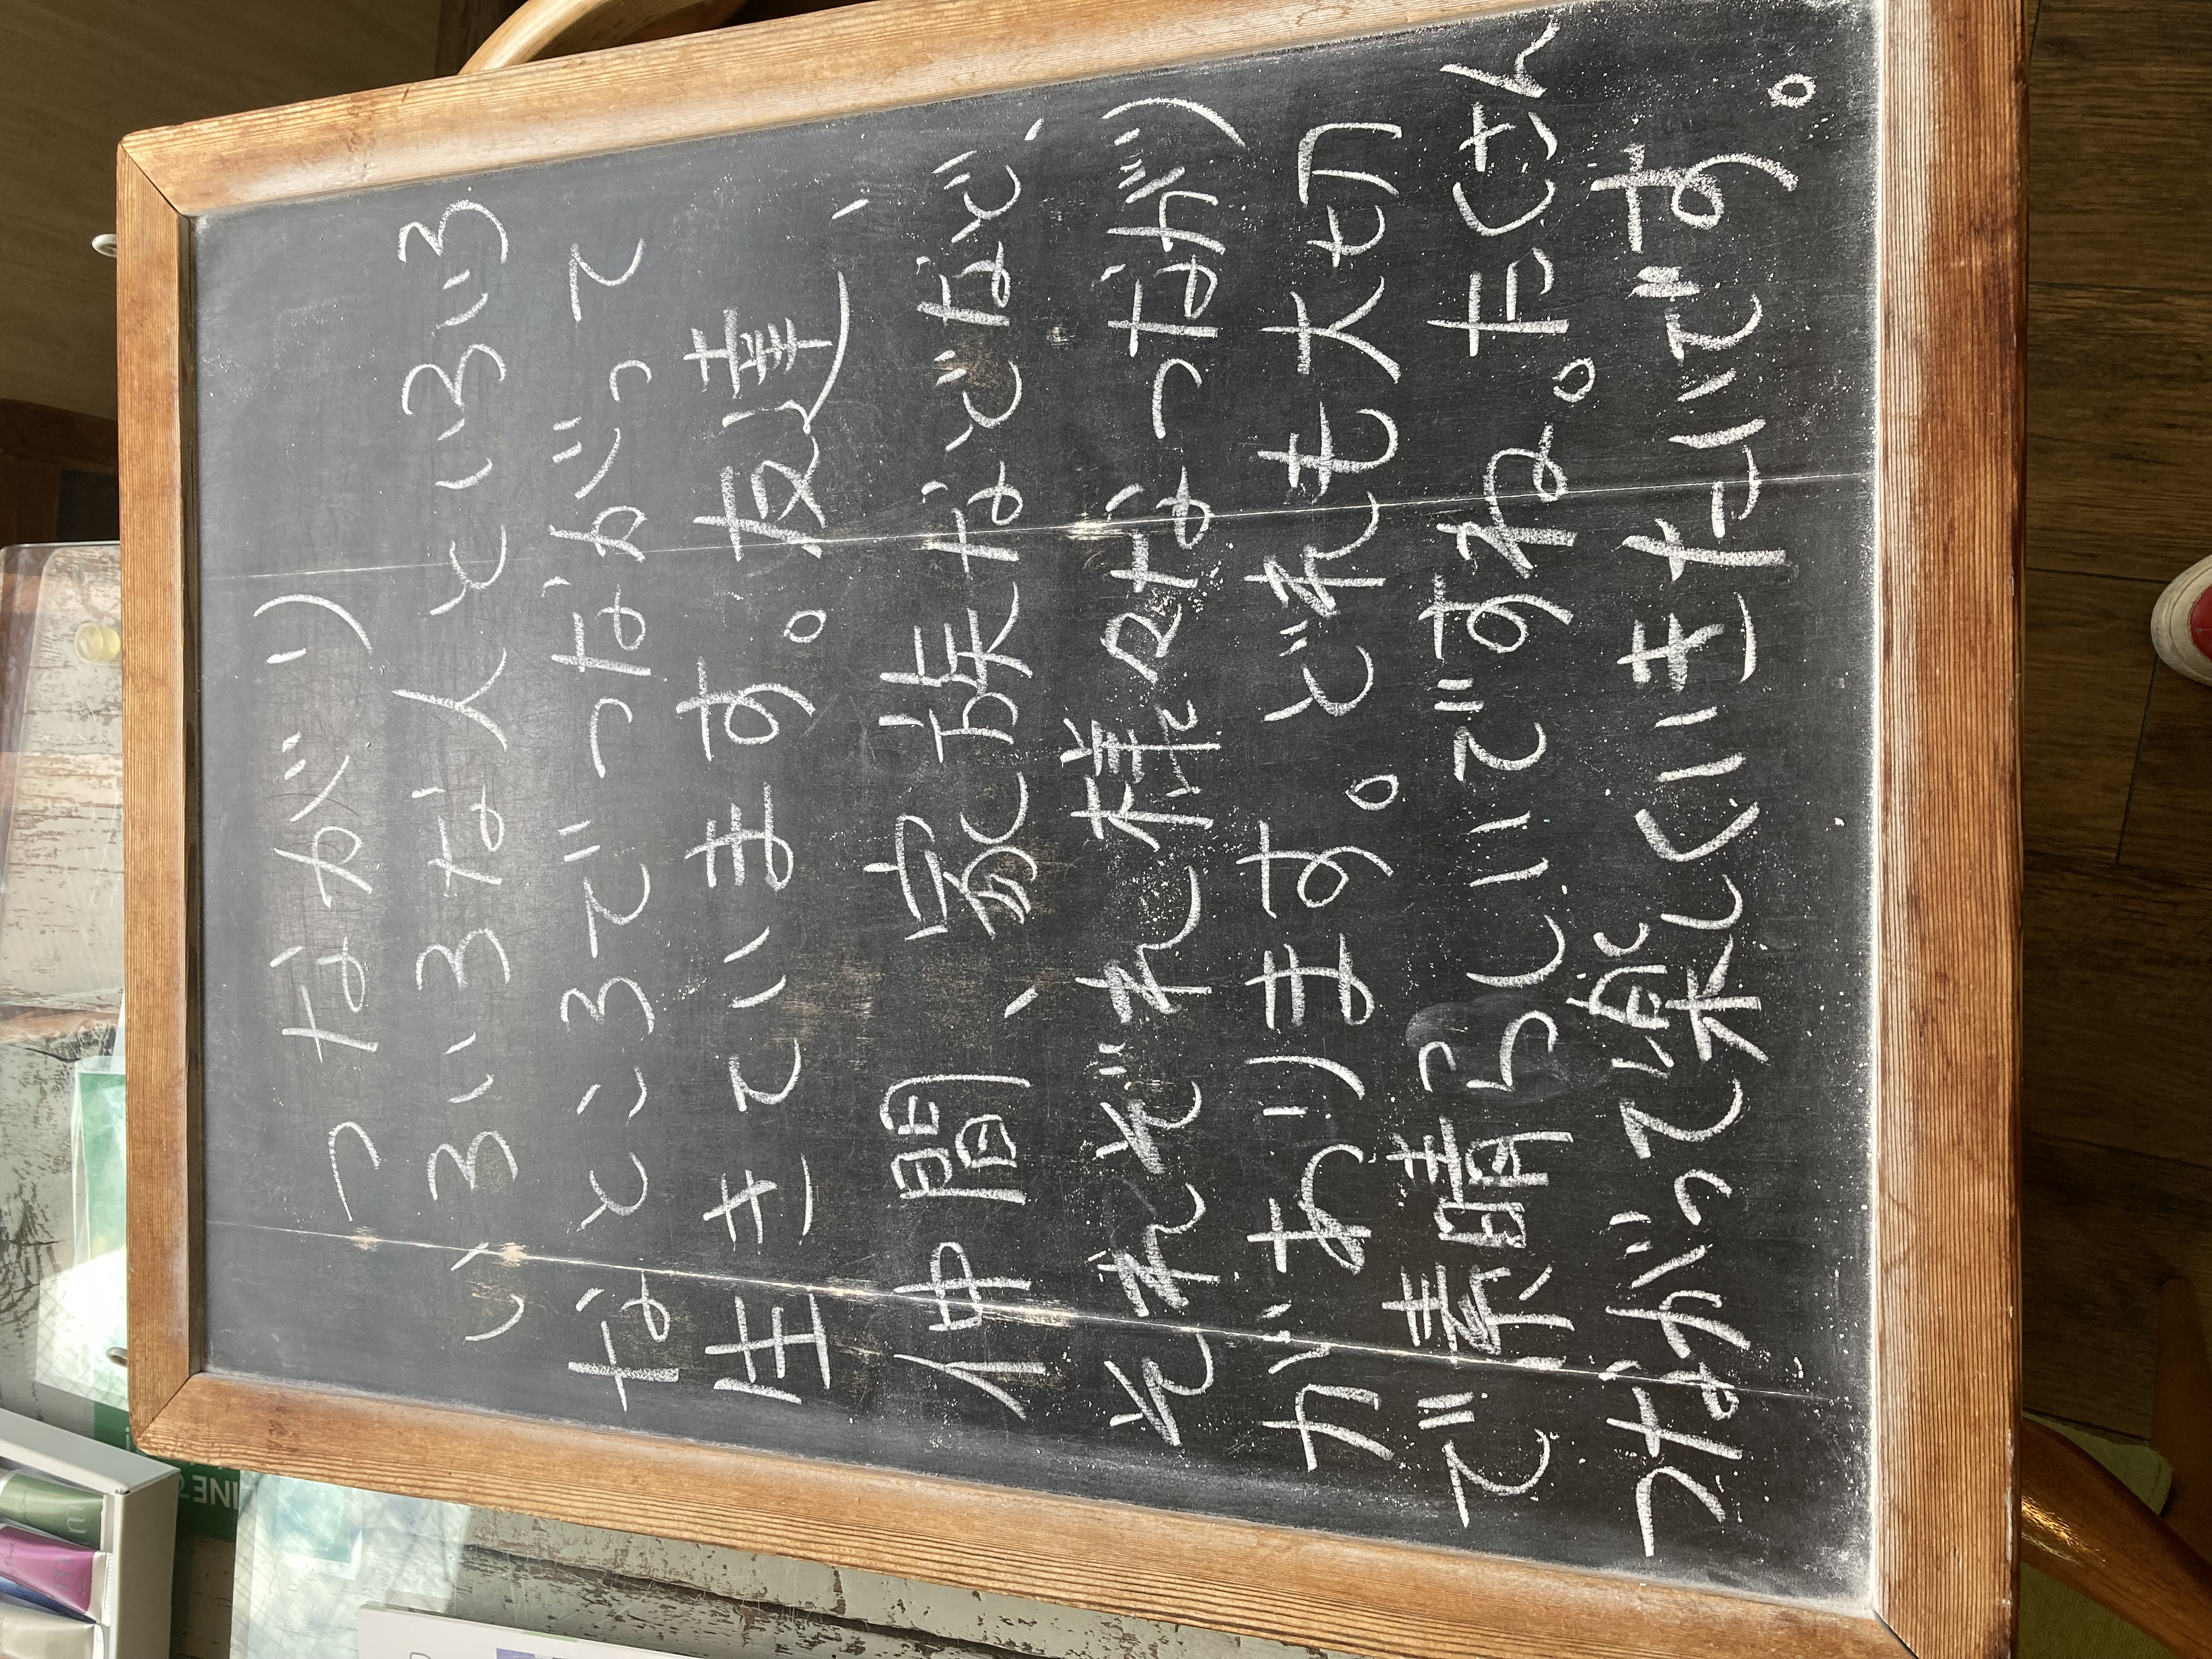 つながり
いろいろな人といろいろ
なところでつながって
生きています。友達、
仲間、家族などなど、
それぞれ様々なつながり
があります。どれも大切
で素晴らしいですね。たくさん
つながって楽しくいきたいです。